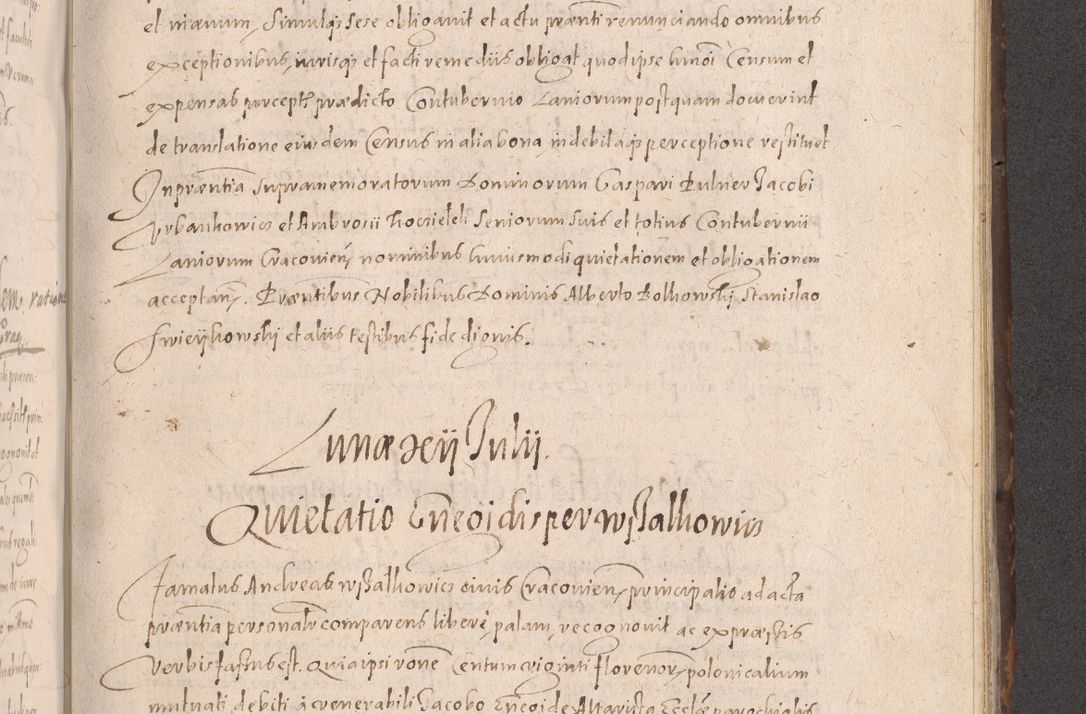 et nravum, simulq3 sese obligavit et actu prænti renunciando omnibus
exceptionibus, iurisq3 et facti remediis obligat quod ipse hmõi Censum et
expensas percept prædicto Contubernio Laniorum postquam docuerint
de translatione eiusdem Census in alia bona, indebitaq3 perceptione restituet
In præntia supramemoratorum Dominorum Gaspari Pulner Jacobi
Vrbankowicz et Ambrosii Seniorum suis et totius Contubernii
Laniorum Cracovien, nominibus huiusmodi quietationem et obligationem
acceptan. Præntibus Nobilibus Dominis Alberto Rolkowskij Stanislao
Swieijkowskij et aliis testibus fide dignis.
Lunæ Julij.
Quietatio per wssalkowicz
Famatus Andreas wssalkowicz civis Cracovien, principalio ad acta
præntia personalr comparens liberè, palam, recognovit ac expræssis
verbis fassus est. Quia ipsi rõne Centum viginti florenor, polonicalium
mutuati debiti à venerabili Jacobo Altarista Ecclæ parochialis